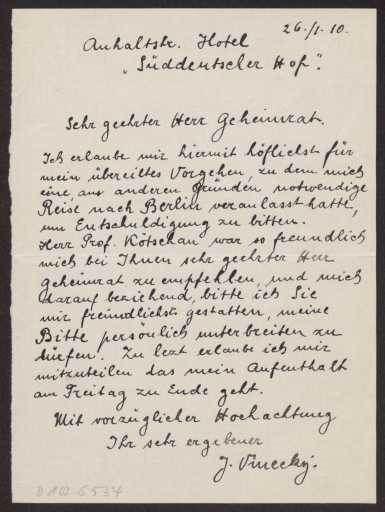 26./1. 10.
Anhaltstr. Hotel
"Süddeutscher Hof".
Sehr geehrter Herr Geheimrat.
Ich erlaube mir hiermit höflichst für
mein übereiltes Vorgehen, zu dem mich
eine, aus anderen Gründen notwendige
Reise nach Berlin veranlasst hatte,
um Entschuldigung zu bitten.
Herr Prof. Kötschau war so freundlich
mich bei Ihnen sehr geehrter Herr
Geheimrat zu empfehlen, und mich
darauf beziehend, bitte ich Sie
mir freundlichst gestatten, meine
Bitte persönlich unterbreiten zu
dürfen. Zu lezt erlaube ich mir
mitzuteilen das mein Aufenthalt
am Freitag zu Ende geht.
Mit vorzüglicher Hochachtung
Ihr sehr ergebener
J. Vinecký.